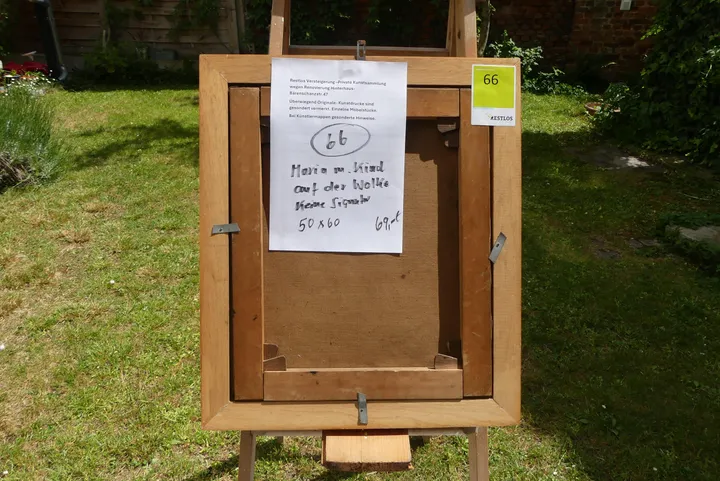 Restlos Versteigerung - Private Kunstsammlung
wegen Renovierung Hinterhaus-
47
Überwiegend Originale. Kunstdrucke sind
gesondert vermerkt. Einzelne Möbelstücke.
Bei Künstlermappen gesonderte Hinweise.
66
Maria m. Kind
auf der Wolke
keine Signatur
50 x 60 69,-€
66
RESTLOS